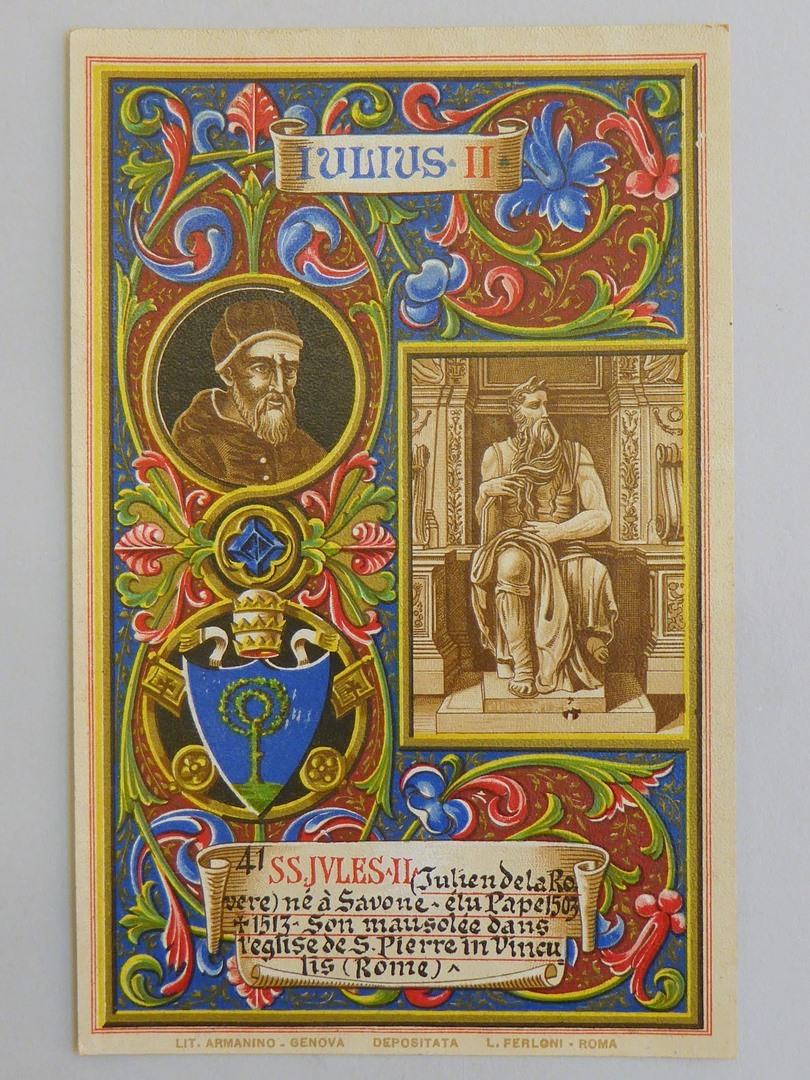 IULIUS · II ·
41 SS.JVLES·II·(Julien de la Ro
vere) né à Savone - élu Pape 1503
✝ 1513 - Son mausolée dans
l'eglise de S. Pierre in Vincu
lis (Rome) ^
LIT. ARMANINO - GENOVA DEPOSITATA L. FERLONI - ROMA